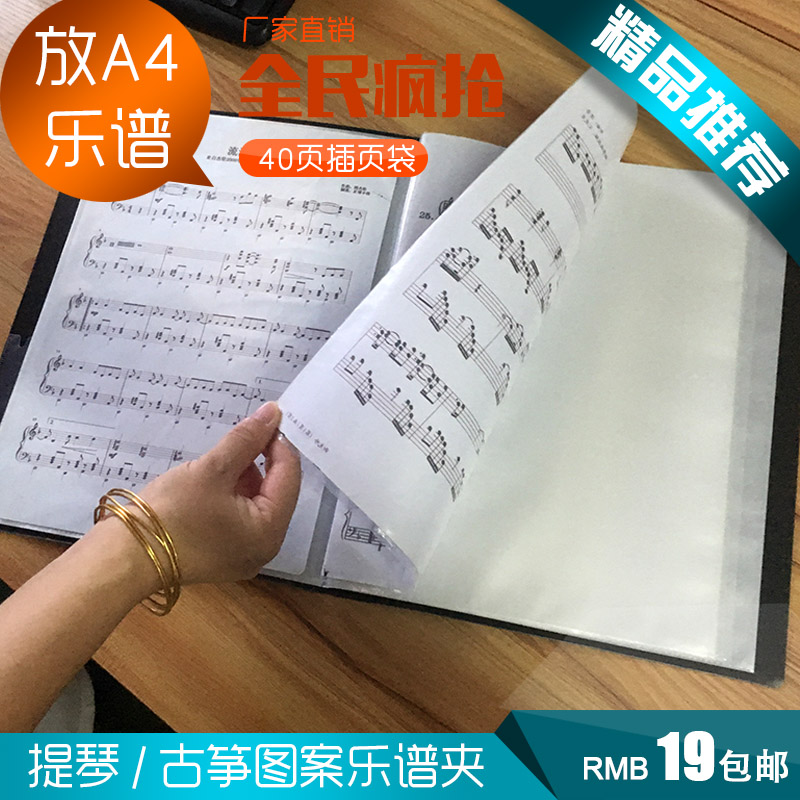 放A4
乐谱
厂家直销
全民疯抢
40页插页袋
精品推荐
25.
提琴/古筝图案乐谱夹
RMB 19包邮